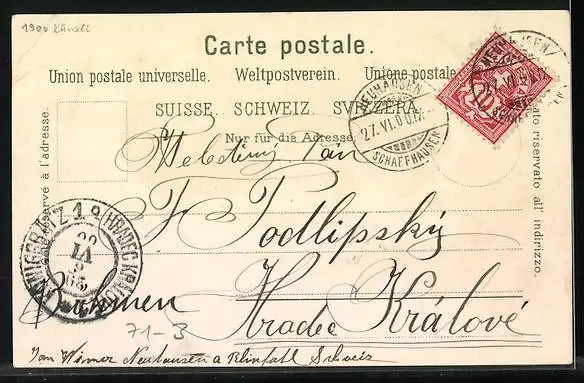 1900 Künzli
Carte postale.
Union postale universelle. Weltpostverein. Unione postale
SUISSE. SCHWEIZ. SVIZZERA.
Nur für die Adresse.
côté réservé à l'adresse.
lato riservato all' indirizzo.
NEUHAUSEN
27.VI.00.IX
SCHAFFHAUSEN
NEUHAUSEN
27.VI.00.IX
10
Velectěný Pán
F Podlipský
Hradec Králové
Böhmen
KÖNIGGRÄTZ 1 HRADEC KRÁLOVÉ
71-3
Jan Wimar Neuhausen a Rheinfall Schweiz